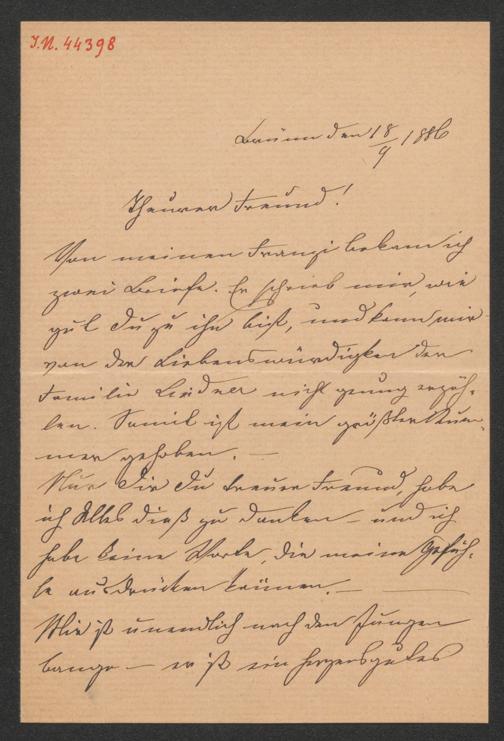 J.N. 44398
Brünn den 18/9 1886
Theurer Freund!
Von meinen Franzi bekam ich
zwei Briefe. Er schrieb mir, wie
gut Du zu ihm bist, und kann mir
von der Liebenswürdigkei der
Familie Lindner nicht genug erzäh-
len. Somit ist mein größter Kum-
mer gehoben. —
Nur Dir Du treuer Freund, habe
ich Alles dieß zu danken — und ich
habe keine Worte, die meine Gefüh-
le ausdrücken können. —
Mir ist unendlich nach den Jungen
bange — er ist ein herzensgutes